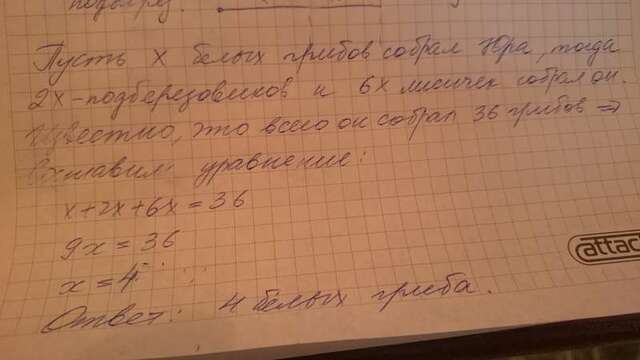 подбер
Пусть x белых грибов собрал Юра, тогда
2x-подберезовиков и 6x лисичек собрал он.
Известно, что всего он собрал 36 грибов ⇒
Составим уравнение:
x+2x+6x=36
9x=36
x=4
Ответ: 4 белых гриба.
attac